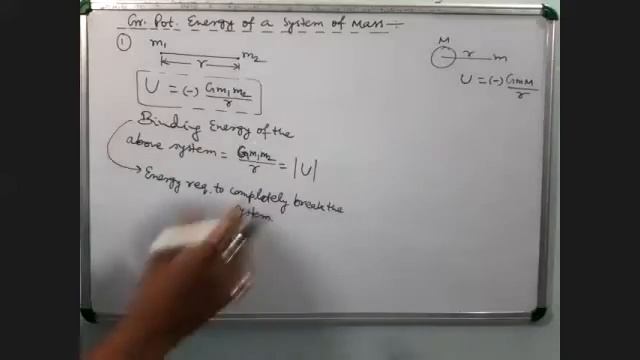 Gr. Pot. Energy of a System of Mass :-
① m₁ m₂
r
U = (-) Gm₁m₂/r
Binding Energy of the
above system = Gm₁m₂/r = |U|
→ Energy req. to completely break the
system.
M
r m
U = (-) GmM/r